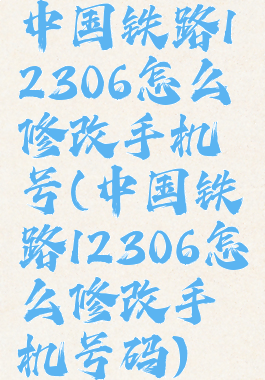 中国铁路1
2306怎么
修改手机
号(中国铁
路12306怎
么修改手
机号码)